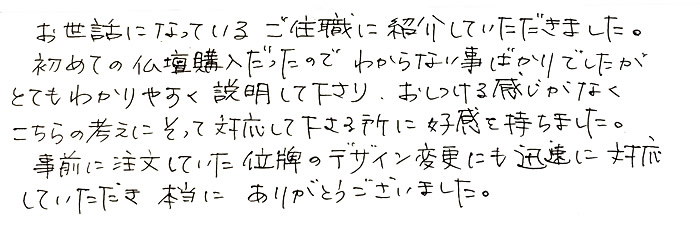 お世話になっている ご住職に紹介していただきました。
初めての仏壇購入だったので わからない事ばかりでしたが
とてもわかりやすく説明して下さり、おしつける感じがなく
こちらの考えにそって対応して下さる所に好感を持ちました。
事前に注文していた位牌のデザイン変更にも迅速に対応
していただき 本当に ありがとうございました。